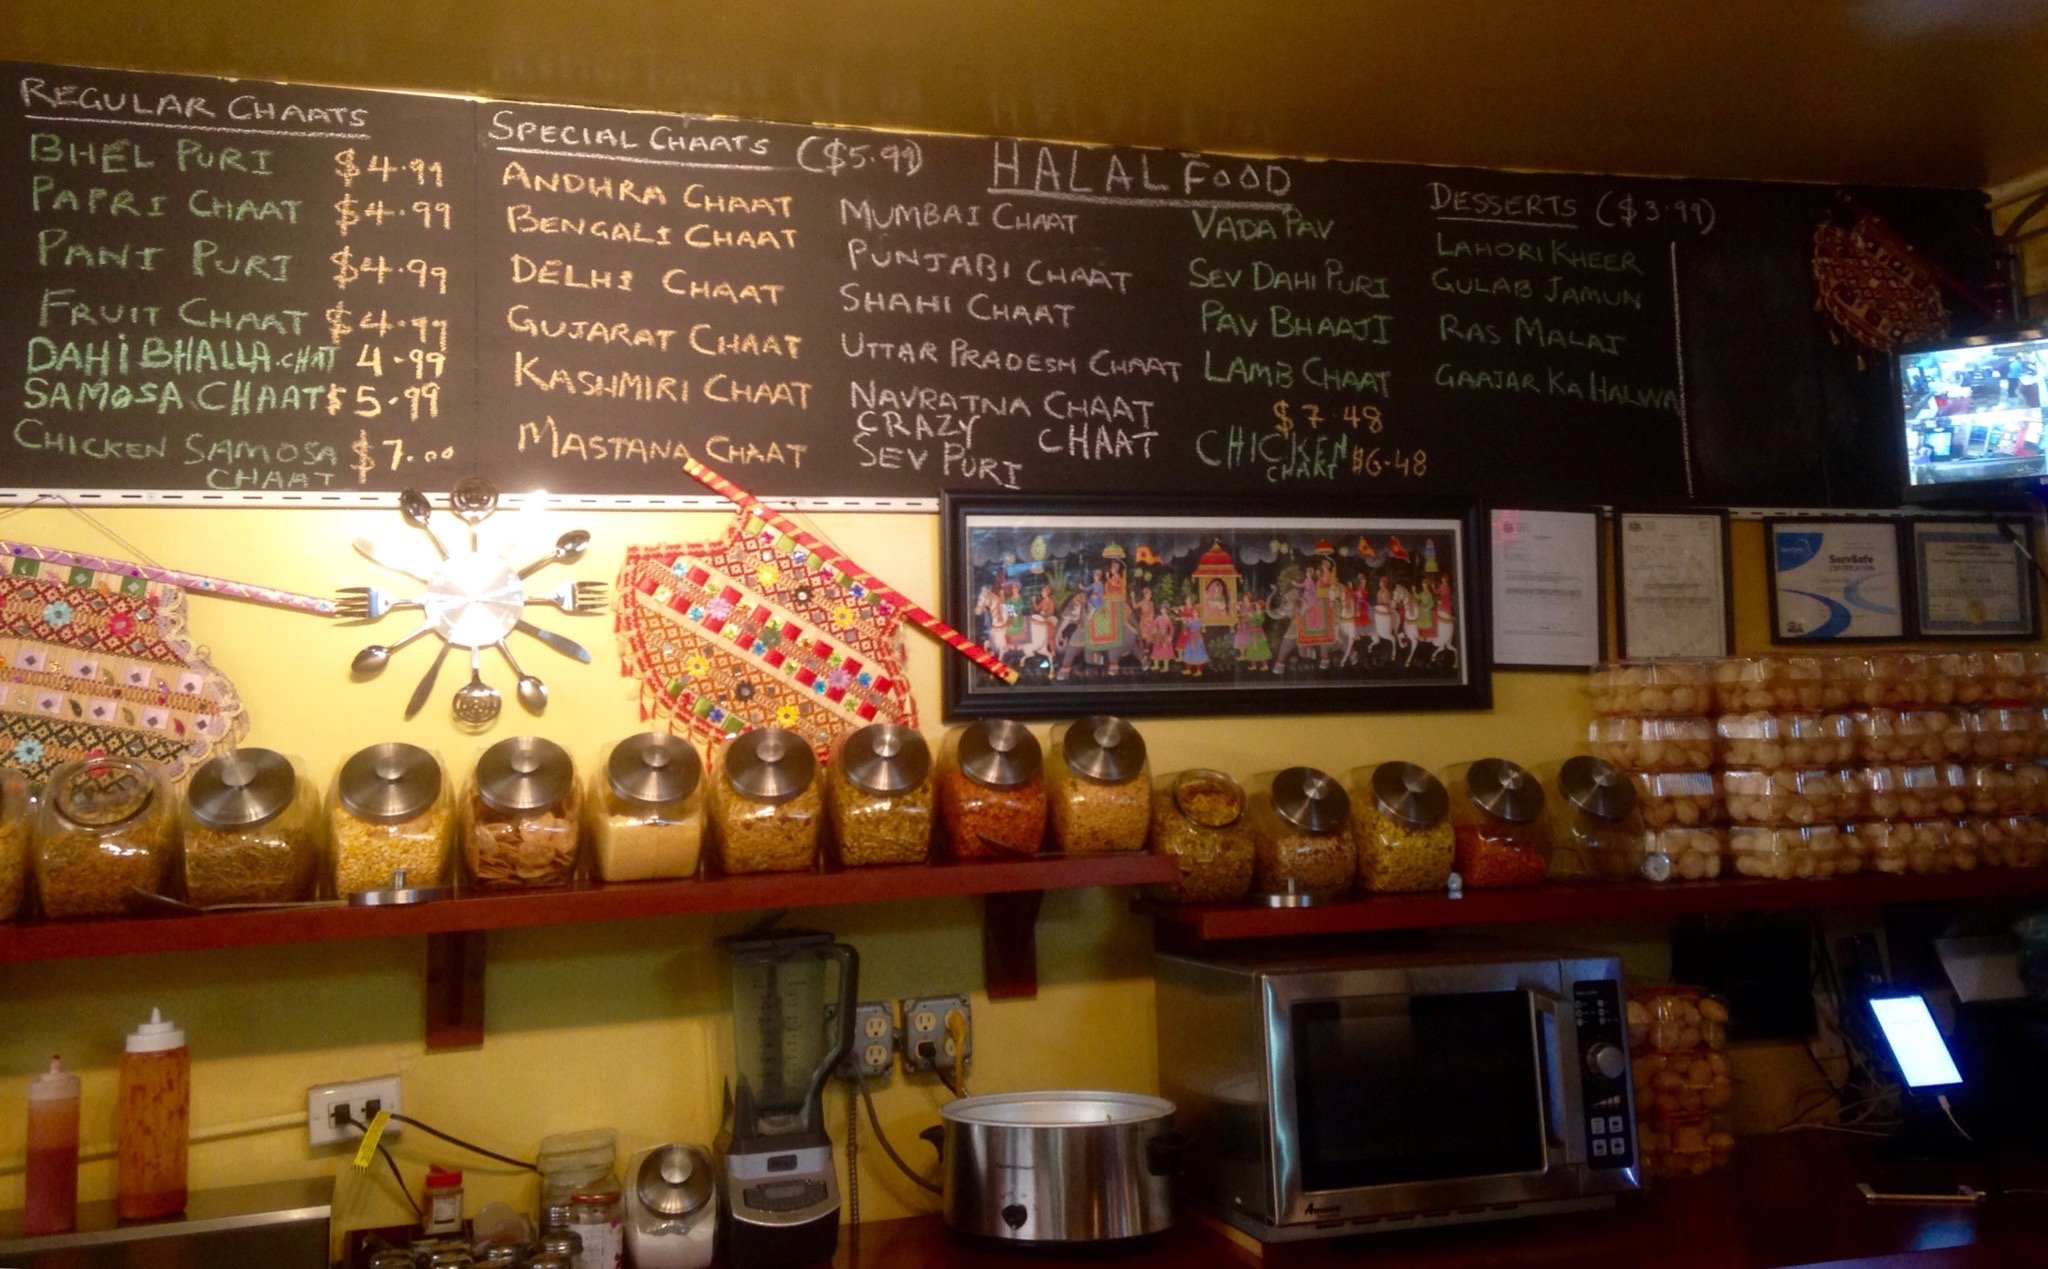 REGULAR CHAATS
BHEL PURI $4.99
PAPRI CHAAT $4.99
PANI PURI $4.99
FRUIT CHAAT $4.99
DAHI BHALLA.CHAT 4.99
SAMOSA CHAAT $5.99
CHICKEN SAMOSA $7.00
CHAAT
SPECIAL CHAATS ($5.99)
ANDHRA CHAAT
BENGALI CHAAT
DELHI CHAAT
GUJARAT CHAAT
KASHMIRI CHAAT
MASTANA CHAAT
MUMBAI CHAAT
PUNJABI CHAAT
SHAHI CHAAT
UTTAR PRADESH CHAAT
NAVRATNA CHAAT
CRAZY CHAAT
SEV PURI
HALAL FOOD
VADA PAV
SEV DAHI PURI
PAV BHAAJI
LAMB CHAAT
$7.48
CHICKEN $6.48
CHAAT
DESSERTS ($3.99)
LAHORI KHEER
GULAB JAMUN
RAS MALAI
GAAJAR KA HALWA
ServSafe
CERTIFICATION
Amana